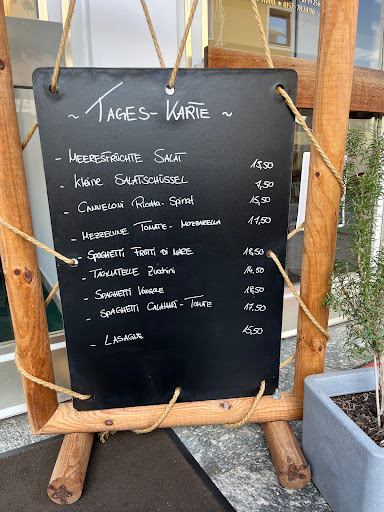 ~ TAGES-KARTE ~
- MEERESFRÜCHTE SALAT 15,50
- Kleine SALATSCHÜSSEL 7,50
- CANNELONI RICOTTA-SPINAT 15,50
- MEZZELUNE TOMATE-MOZZARELLA 17,50
- SPAGHETTI FRUTTI DI MARE 18,50
- TAGLIATELLE Zucchini 14,50
- SPAGHETTI VONGOLE 18,50
- SPAGHETTI CALAMARI-TOMATE 17,50
- LASAGNE 15,50